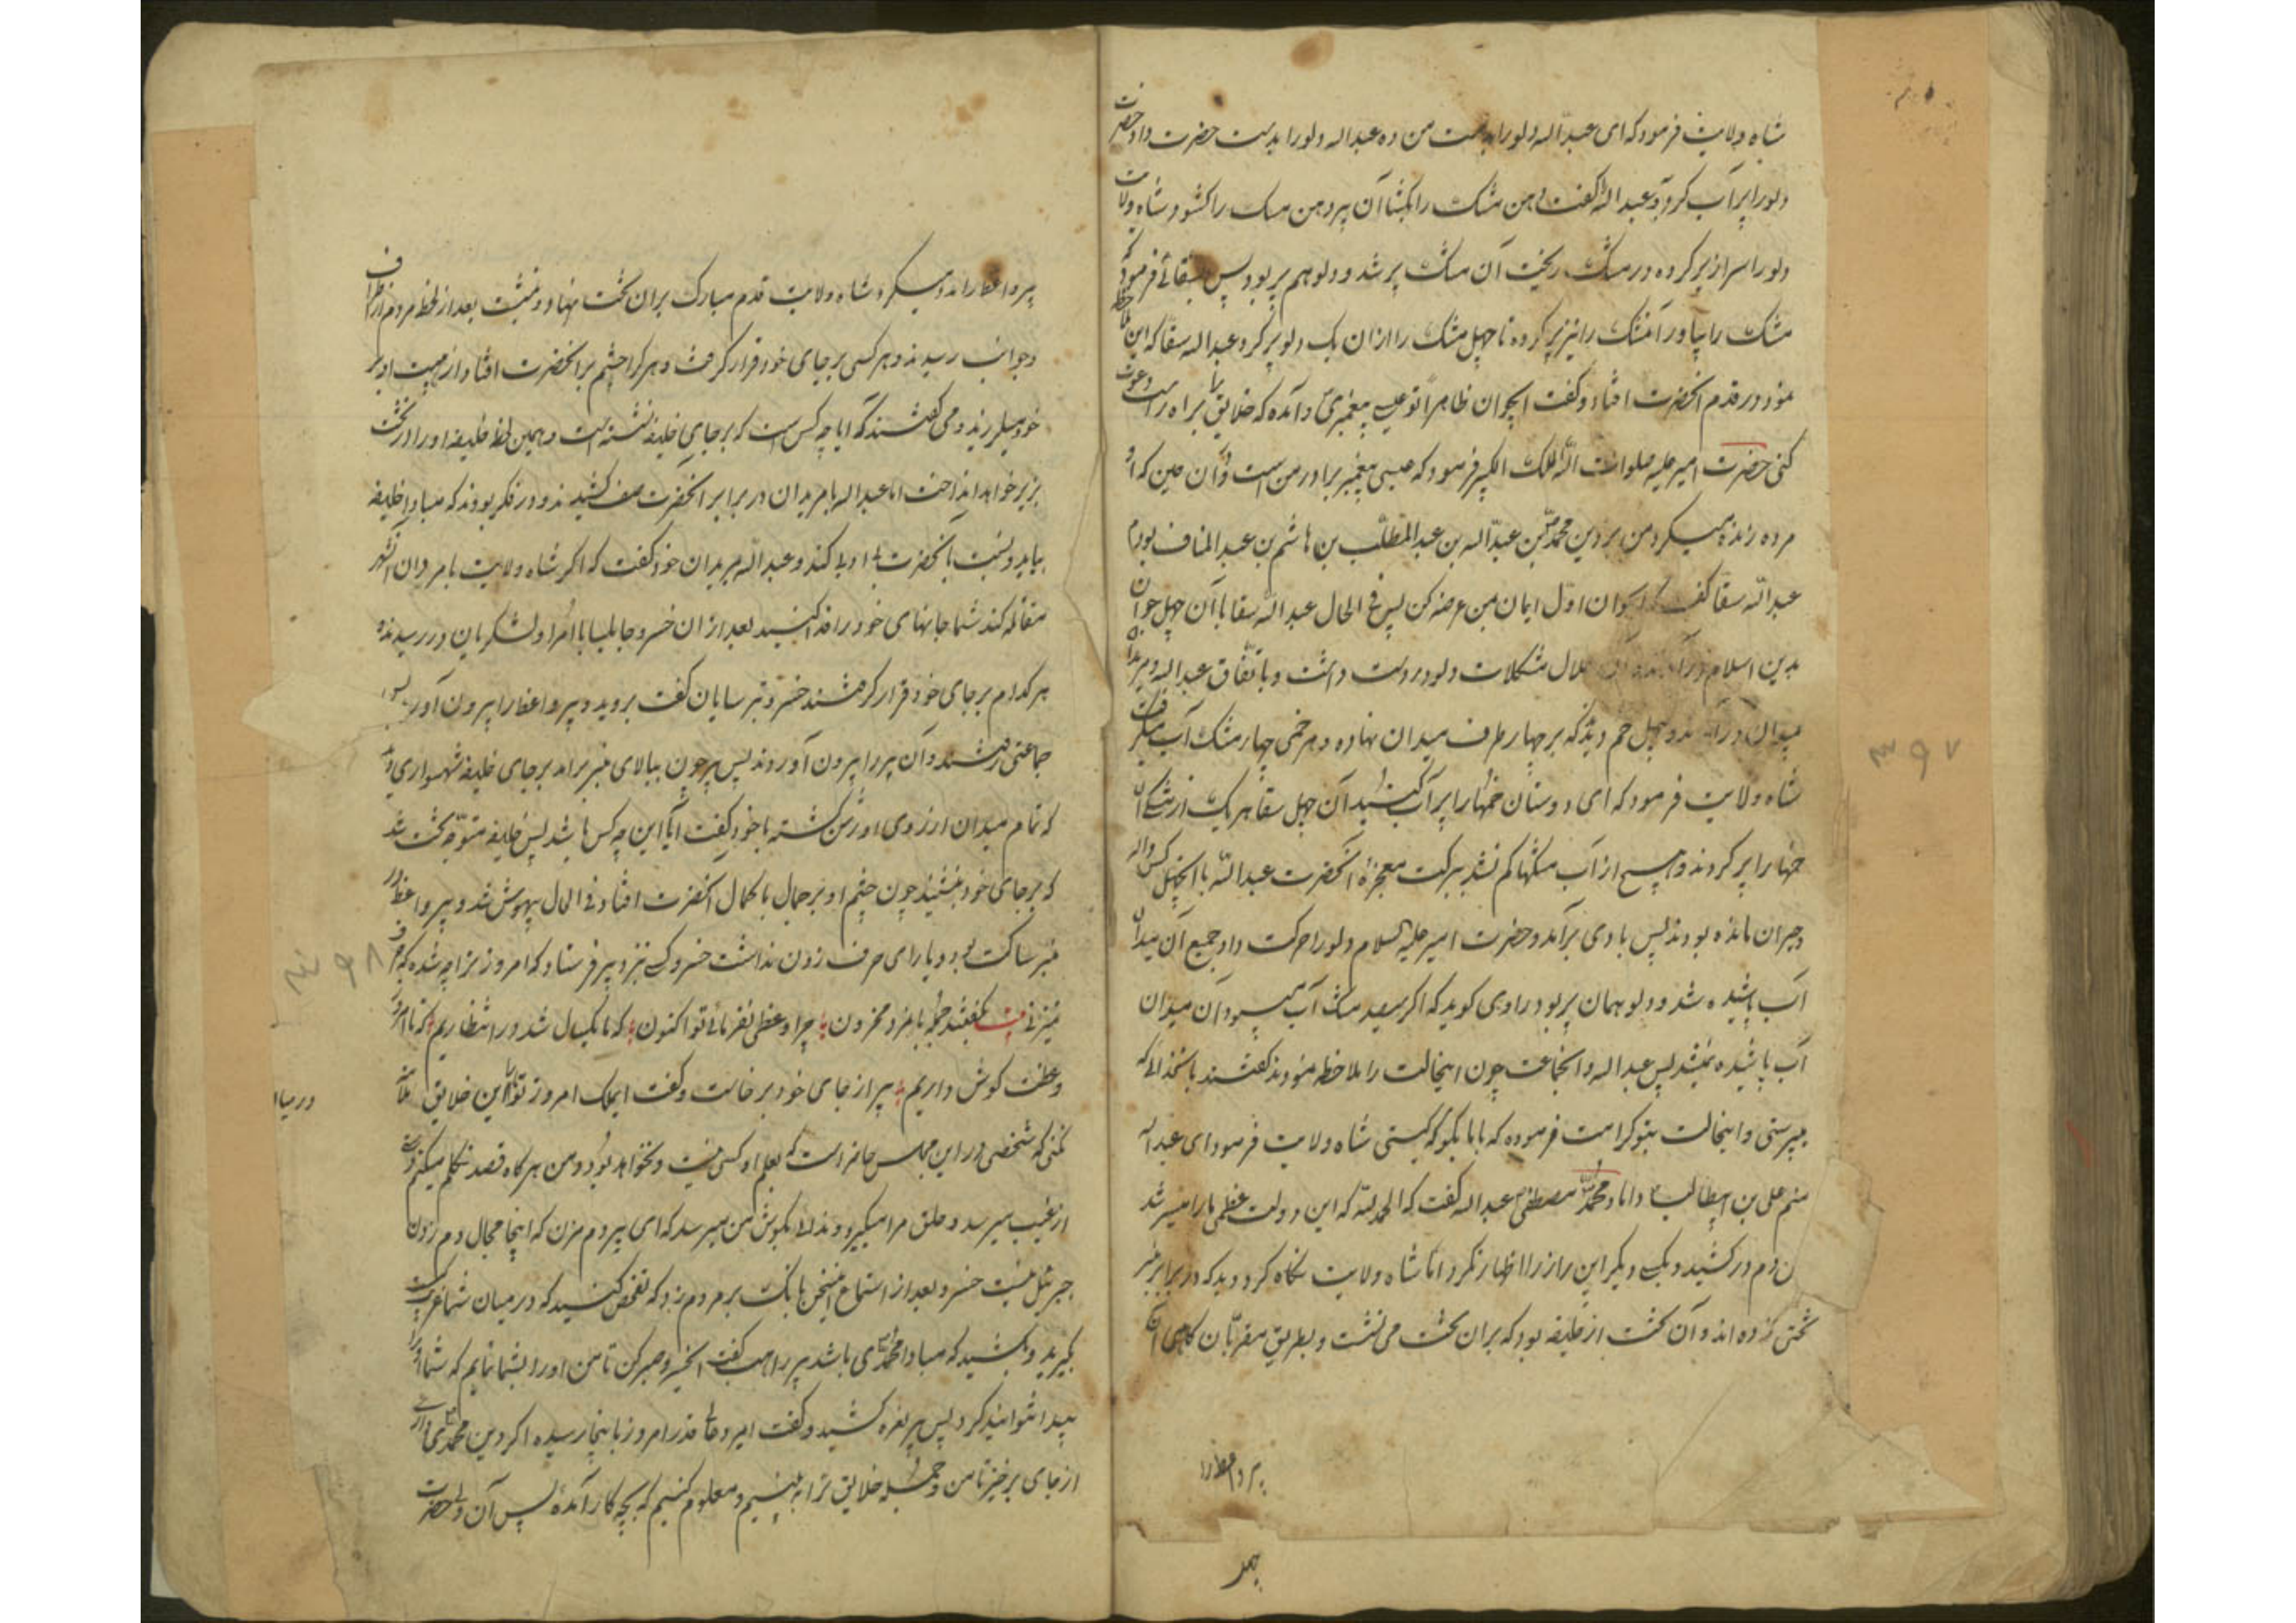 شاه ولایت فرمود که ای عبداله دلو را بدست من ده عبداله دلو را بدست حضرت داد حضرت
دلو را پر آب کرد و بعبداله گفت دهن مشک را بکشا آن پیر دهن مشک را کشود و شاه ولایت
دلو را سرازیر کرده در مشک ریخت آن مشک پر شد و دلو هم پر بود پس بسقائی فرمود که
مشک را بیاور آن مشک را نیز پر کرده تا چهل مشک را ازان یک دلو پر کرد عبداله سقا که این
نمود در قدم آنحضرت افتاد و گفت ایجوان ظاهرا تو عیسی پیغمبری و آمده که خلایق را براه راست دعوت
کنی حضرت امیر علیه صلوات الله الملک الکبیر فرمود که عیسی پیغمبر برادر من است و آن حین که او
مرده زنده میکرد من بر دین محمد بن عبداله بن عبدالمطلب بن هاشم بن عبدالمناف بودم
عبداله سقا گفت ایجوان اول ایمان بمن عرضه کن پس فی الحال عبداله سقا با آن چهل جوان
بدین اسلام در آمدند حلال مشکلات دلو در دست داشت و باتفاق عبداله و مریدان
میدان در آمدند و چهل خم دیدند که بر چهار طرف میدان نهاده و هر خمی چهار مشک آب میگرفت
شاه ولایت فرمود که ای دوستان خمها را پر آب کنید آن چهل سقا هر یک از مشک آن
خمها را پر کردند و هیچ از آب مشکها کم نشد ببرکت معجزه آنحضرت عبداله با آن چهل کس واله
و حیران مانده بودند پس بادی برآمد و حضرت امیر علیه السلام دلو را حرکت داد جمیع آن میدان
آب پاشیده شد و دلو همان پر بود راوی گوید که اگر سیصد مشک آب میبود آن میدان
آب پاشیده نمیشد پس عبداله و آن جماعت چون اینحالت را ملاحظه نمودند گفتند با آنخدائی که
میپرستی و اینحالت بتو کرامت فرموده که با ما بگو که کیستی شاه ولایت فرمود ای عبداله
منم علی بن ابیطالب داماد محمد مصطفی عبداله گفت که الحمد لله که این دولت عظمی ما را میسر شد
دم در کشید و بکسی دیگر این راز را اظهار نکرد اما شاه ولایت نگاه کرد و دید که در برابر منبر
تختی زده اند و آن تخت از خلیفه بود که بران تخت می نشست و بطریق مقربان گاهی
پیر واعظ را
چهد
۳۹۷
پیر واعظ را مدد میکرد شاه ولایت قدم مبارک بران تخت نهاد و بنشست بعد از لحظه مردم از اطراف
و جوانب رسیدند و هر کسی بر جای خود قرار گرفت و هر کرا چشم بر آنحضرت افتاد از هیبت او بر
خود میلرزید و می گفتند که ایا چه کس است که بر جای خلیفه نشسته است و همین لحظه خلیفه او را از تخت
بزیر خواهد انداخت اما عبداله با مریدان در برابر آنحضرت صف کشیدند و در فکر بودند که مبادا خلیفه
بیاید و نسبت بآنحضرت بی ادبی کند و عبداله بمریدان خود گفت که اگر شاه ولایت با مردان این شهر
مقاتله کند شما جانهای خود را فدا کنید بعد ازان خسرو جابلسا با امرا و لشکریان در رسیدند
هر کدام بر جای خود قرار گرفتند خسرو ترسایان گفت بروید و پیر واعظ را بیرون آورید پس
جماعتی رفتند و آن پیر را بیرون آوردند پس پیر چون ببالای منبر برآمد بر جای خلیفه شهسواری دید
که تمام میدان از روی او روشن گشته با خود گفت آیا این چه کس باشد پس خلیفه متوجه تخت شد
که بر جای خود بنشیند چون چشم او بر جمال با کمال آنحضرت افتاد فی الحال بیهوش شد و پیر واعظ در
منبر ساکت بود و یارای حرف زدن نداشت خسرو کسی نزد پیر فرستاد که امروز ترا چه شده که حرف
نمیزنی بیت گفتند جمله با پیر محزون چرا وعظی نفرمائی تو اکنون که تا یکسال شد در انتظاریم که تا امروز
وعظت گوش داریم پیر از جای خود برخاست و گفت ایملک امروز تو با این خلایق
کنی که شخصی در این مجلس حاضر است که بعلم او کسی نیست و نخواهد بود و من هرگاه قصد تکلم میکنم
از غیب میرسد و حلق مرا میگیرد و ندائی بگوش من میرسد که ای پیر دم مزن که اینجا مجال دم زدن
جبرئیل نیست خسرو بعد از استماع اینسخن بانگ بر مردم زد که تفحص کنید که در میان شما غریب کیست
بگیرید و بکشید که مبادا محمدی باشد پیر راهب گفت ایخسرو صبر کن تا من او را بشما نمایم که شما او را
پیدا نتوانید کرد پس پیر نعره کشید و گفت ایمرد عالی قدر امروز با اینجا رسیده اگر دین محمدی داری
از جای برخیز تا من و جمله خلایق ترا به بینیم و معلوم کنیم که بچه کار آمده پس آن ولی حضرت
در میان
۳۹۸